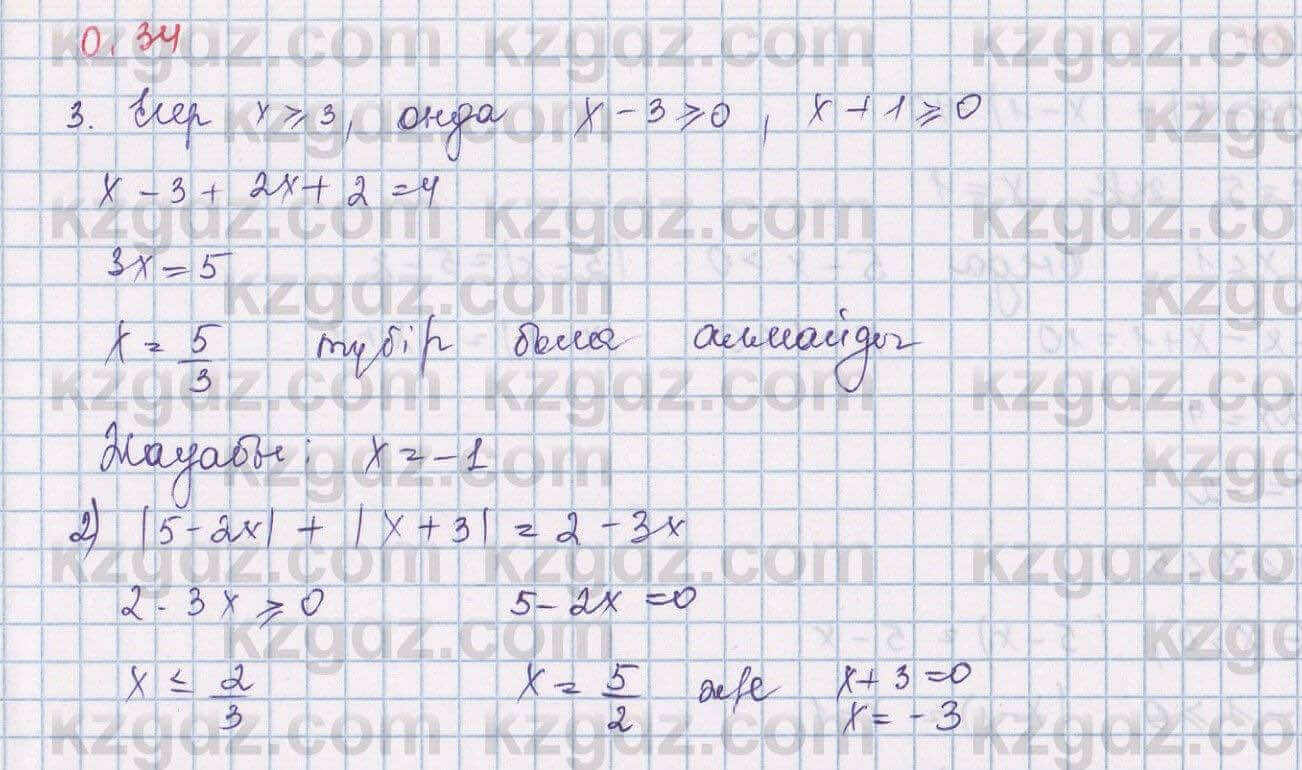 0.34
3. Егер x ≥ 3, онда x - 3 ≥ 0, x + 1 ≥ 0
x - 3 + 2x + 2 = 4
3x = 5
x = 5/3 түбір бола алмайды
Жауабы: x = -1
2) |5 - 2x| + |x + 3| = 2 - 3x
2 - 3x ≥ 0 5 - 2x = 0
x ≤ 2/3 x = 5/2 және x + 3 = 0
x = -3
kzgdz.com